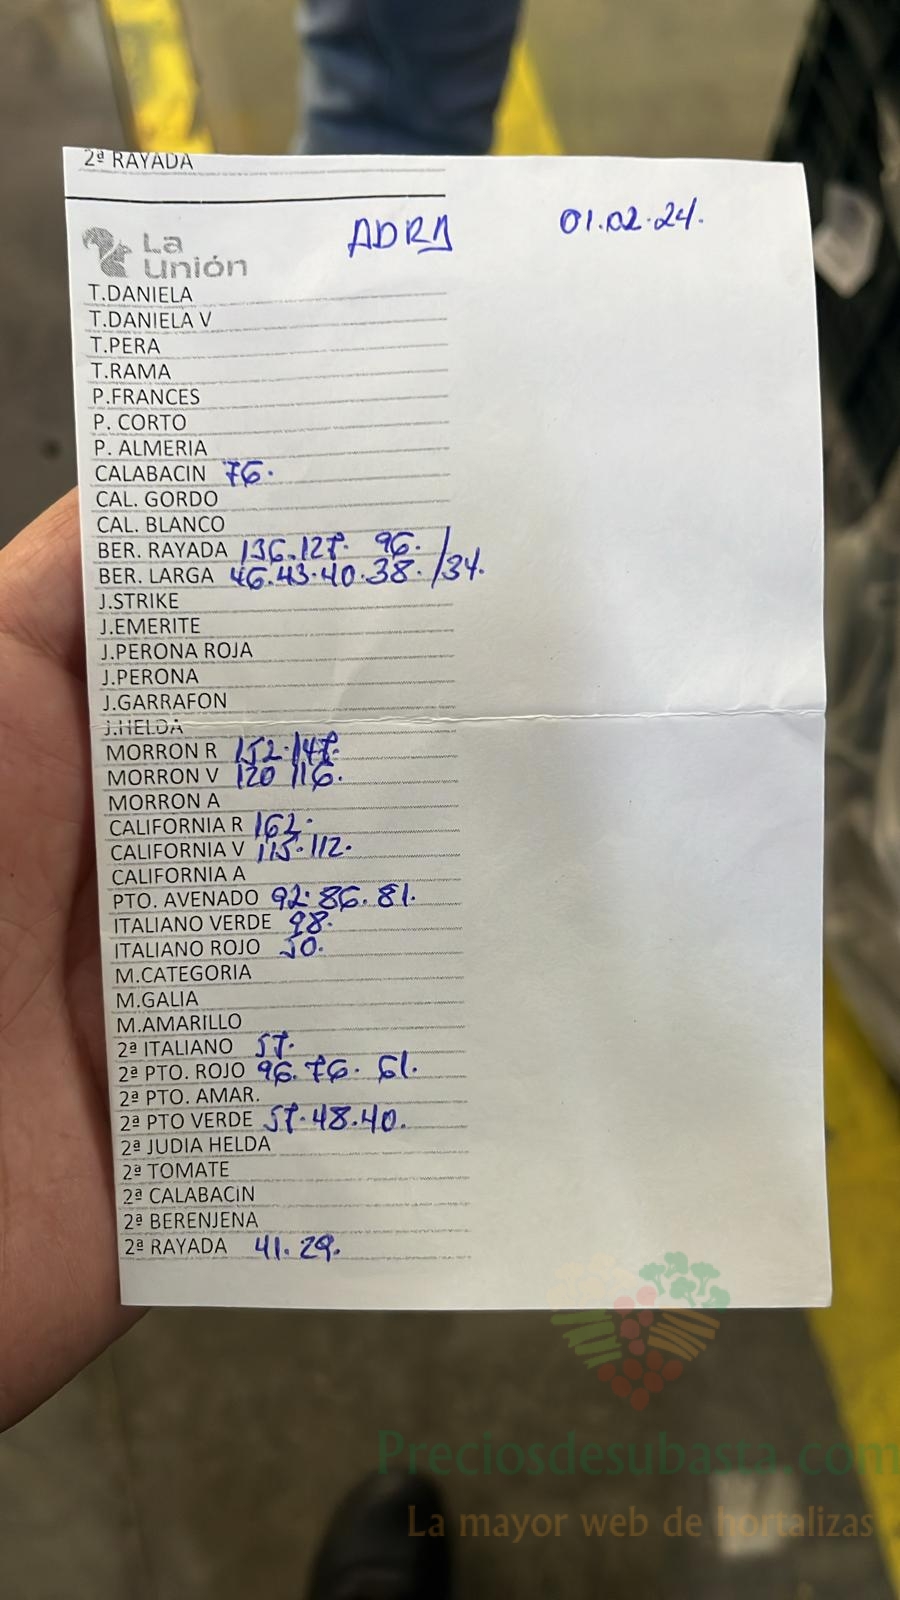 2ª RAYADA
La Unión ADRA 01.02.24.
T.DANIELA
T.DANIELA V
T.PERA
T.RAMA
P.FRANCES
P. CORTO
P. ALMERIA
CALABACIN 76.
CAL. GORDO
CAL. BLANCO
BER. RAYADA 136.127. 96.
BER. LARGA 46.43.40.38. /34.
J.STRIKE
J.EMERITE
J.PERONA ROJA
J.PERONA
J.GARRAFON
J.HELDA
MORRON R 152.147.
MORRON V 120 116.
MORRON A
CALIFORNIA R 162.
CALIFORNIA V 115.112.
CALIFORNIA A
PTO. AVENADO 92.86.81.
ITALIANO VERDE 98.
ITALIANO ROJO 50.
M.CATEGORIA
M.GALIA
M.AMARILLO
2ª ITALIANO 57.
2ª PTO. ROJO 96.76. 61.
2ª PTO. AMAR.
2ª PTO VERDE 57.48.40.
2ª JUDIA HELDA
2ª TOMATE
2ª CALABACIN
2ª BERENJENA
2ª RAYADA 41. 29.
Preciosdesubasta.com
La mayor web de hortalizas